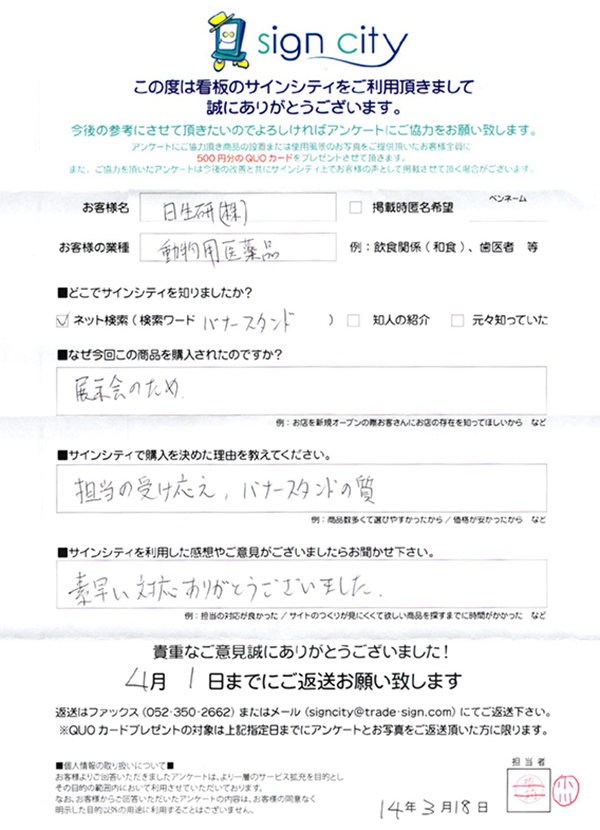 sign city
この度は看板のサインシティをご利用頂きまして
誠にありがとうございます。
今後の参考にさせて頂きたいのでよろしければアンケートにご協力をお願い致します。
アンケートにご協力頂き商品の設置または使用風景のお写真をご提供頂いたお客様全員に
500円分のQUOカードをプレゼントさせて頂きます。
また、ご協力を頂いたアンケートは今後の改善と共にサインシティ上でお客様の声として掲載させて頂く場合がございます。
お客様名 日生研(株) □ 掲載時匿名希望 ペンネーム
お客様の業種 動物用医薬品 例：飲食関係（和食）、歯医者 等
■どこでサインシティを知りましたか？
☑ ネット検索（検索ワード バナースタンド ） □ 知人の紹介 □ 元々知っていた
■なぜ今回この商品を購入されたのですか？
展示会のため.
例：お店を新規オープンの際お客さんにお店の存在を知ってほしいから など
■サインシティで購入を決めた理由を教えてください。
担当の受け応え, バナースタンドの質
例：商品数多くて選びやすかったから / 価格が安かったから など
■サインシティを利用した感想やご意見がございましたらお聞かせ下さい。
素早い対応ありがとうございました.
例：担当の対応が良かった / サイトのつくりが見にくくて欲しい商品を探すまでに時間がかかった など
貴重なご意見誠にありがとうございました！
4月 1 日までにご返送お願い致します
返送はファックス（052-350-2662）またはメール（signcity@trade-sign.com）にてご返送下さい。
※QUOカードプレゼントの対象は上記指定日までにアンケートとお写真をご返送頂いた方に限ります。
■個人情報の取り扱いについて■
お客様よりご回答いただきましたアンケートは、より一層のサービス拡充を目的とし
その目的の範囲内において利用させていただいております。
なお、お客様からご回答いただいたアンケートの内容は、お客様の同意なく
明示した目的以外の用途に利用することはございません。
担当者
14年3月18日